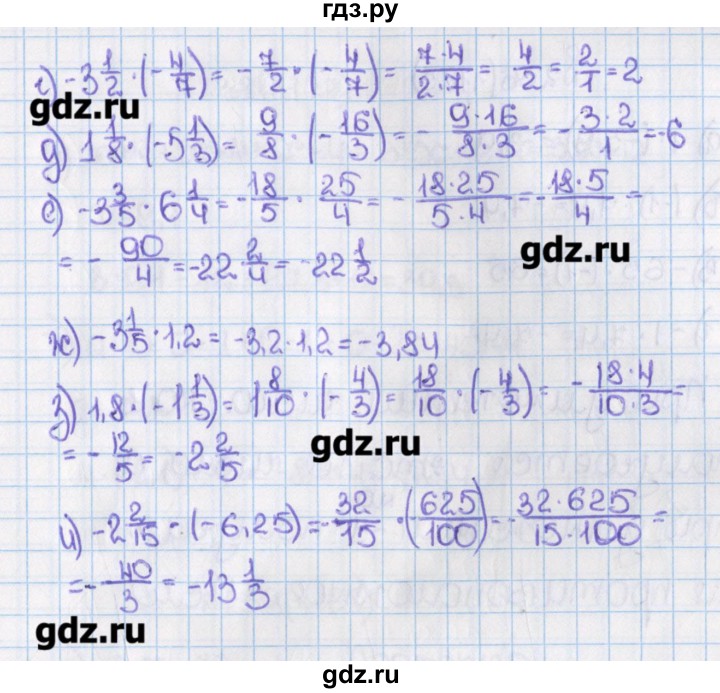 гдз.ру
г) -3 1/2 · (- 4/7) = - 7/2 · (- 4/7) = 7·4/2·7 = 4/2 = 2/1 = 2
gdz.ru
д) 1 1/8 · (-5 1/3) = 9/8 · (- 16/3) = - 9·16/8·3 = - 3·2/1 = -6
е) -3 3/5 · 6 1/4 = - 18/5 · 25/4 = - 18·25/5·4 = - 18·5/4 =
gdz.ru
= - 90/4 = -22 2/4 = -22 1/2
ж) -3 1/5 · 1,2 = -3,2 · 1,2 = -3,84
з) 1,8 · (-1 1/3) = 1 8/10 · (- 4/3) = 18/10 · (- 4/3) = - 18·4/10·3 =
gdz.ru
= - 12/5 = -2 2/5
и) -2 2/15 · (-6,25) = - 32/15 · (625/100) = - 32·625/15·100 =
= - 40/3 = -13 1/3
gdz.ru
gdz.ru